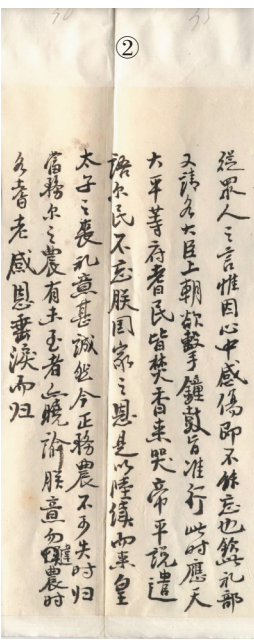 ②
從眾人之言惟因心中感傷即不能忘也然礼部
又請各大臣上朝欲數手鐘鼓皆准行此时應天
大平等府耆民皆焚香来哭帝平説遣
語尔民不忘朕国家之恩是以陸續而来皇
太子之喪礼意甚誠然今正務農不可失时归
當務尔之農有未至者人曉諭朕意勿悮農时
各耆老感恩垂淚而归